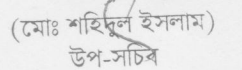 (মোঃ শরিফুল ইসলাম)
উপ-সচিব